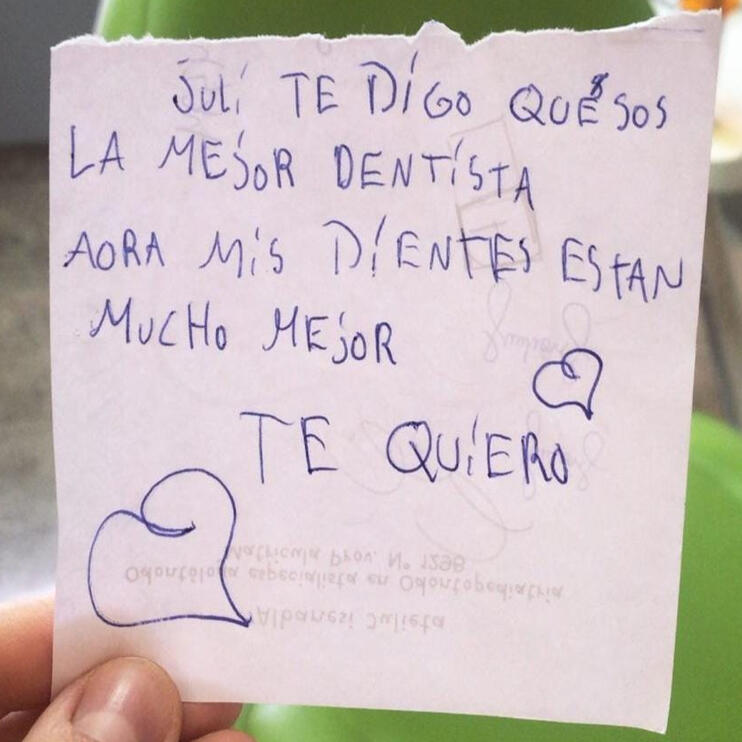 Juli TE DIGO QUE SOS
LA MEJOR DENTISTA
AORA MIS DIENTES ESTAN
MUCHO MEJOR
TE QUIERO
Albanesi Julieta
Odontóloga especialista en Odontopediatria
Matricula Prov. N° 1298